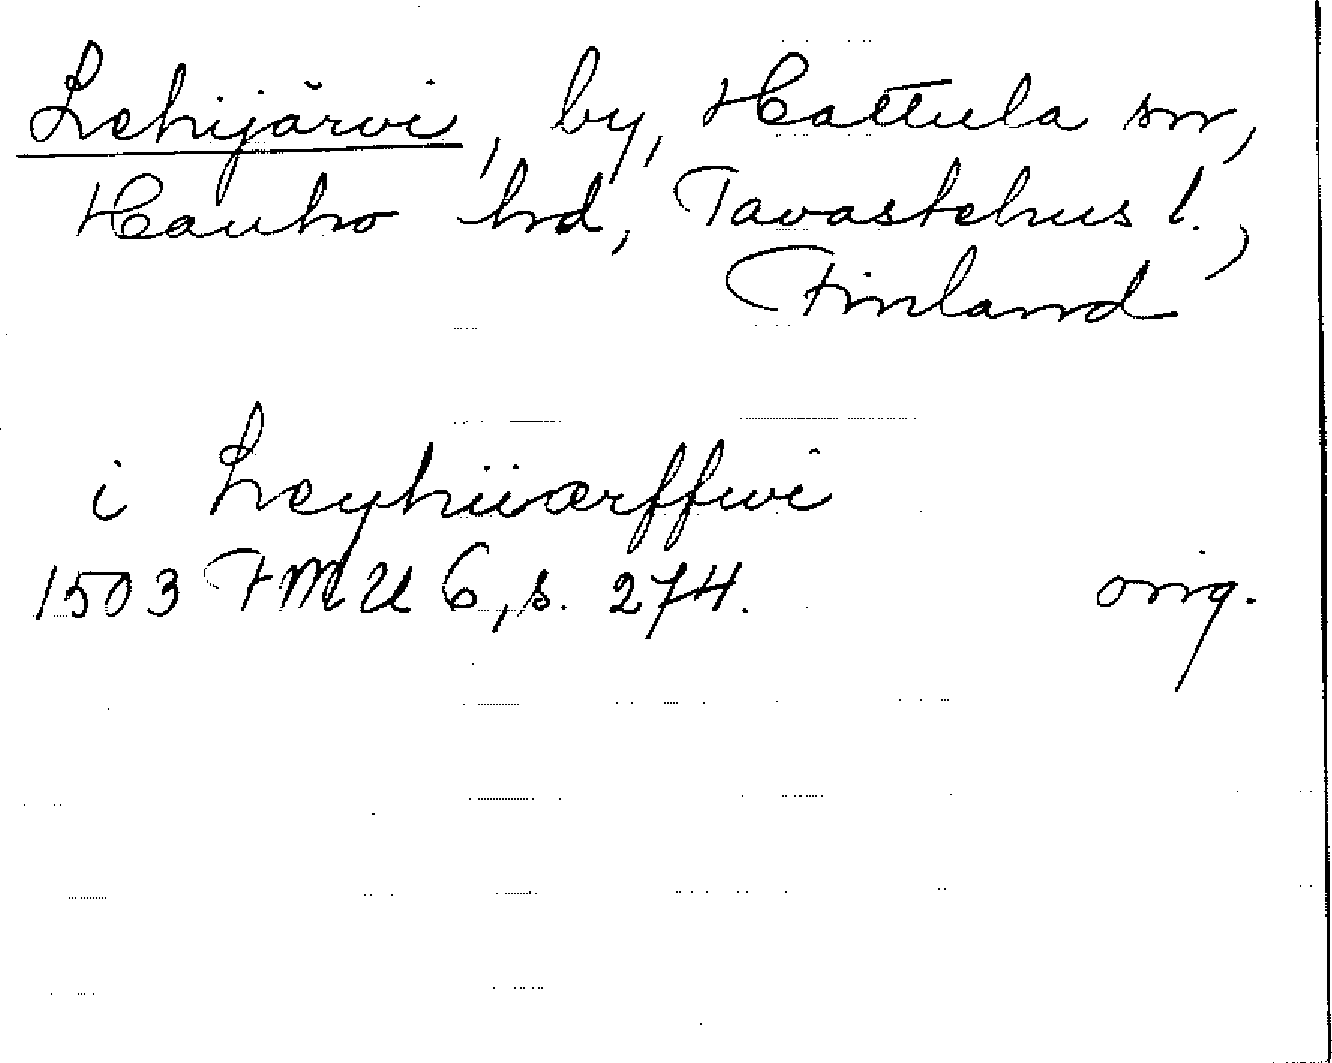 Lehijärvi, by, Hattula sn,
Hauho hd, Tavastehus l.,
Finland
i Leyhiiærffwi
1503 FMU 6, s. 274. orig.